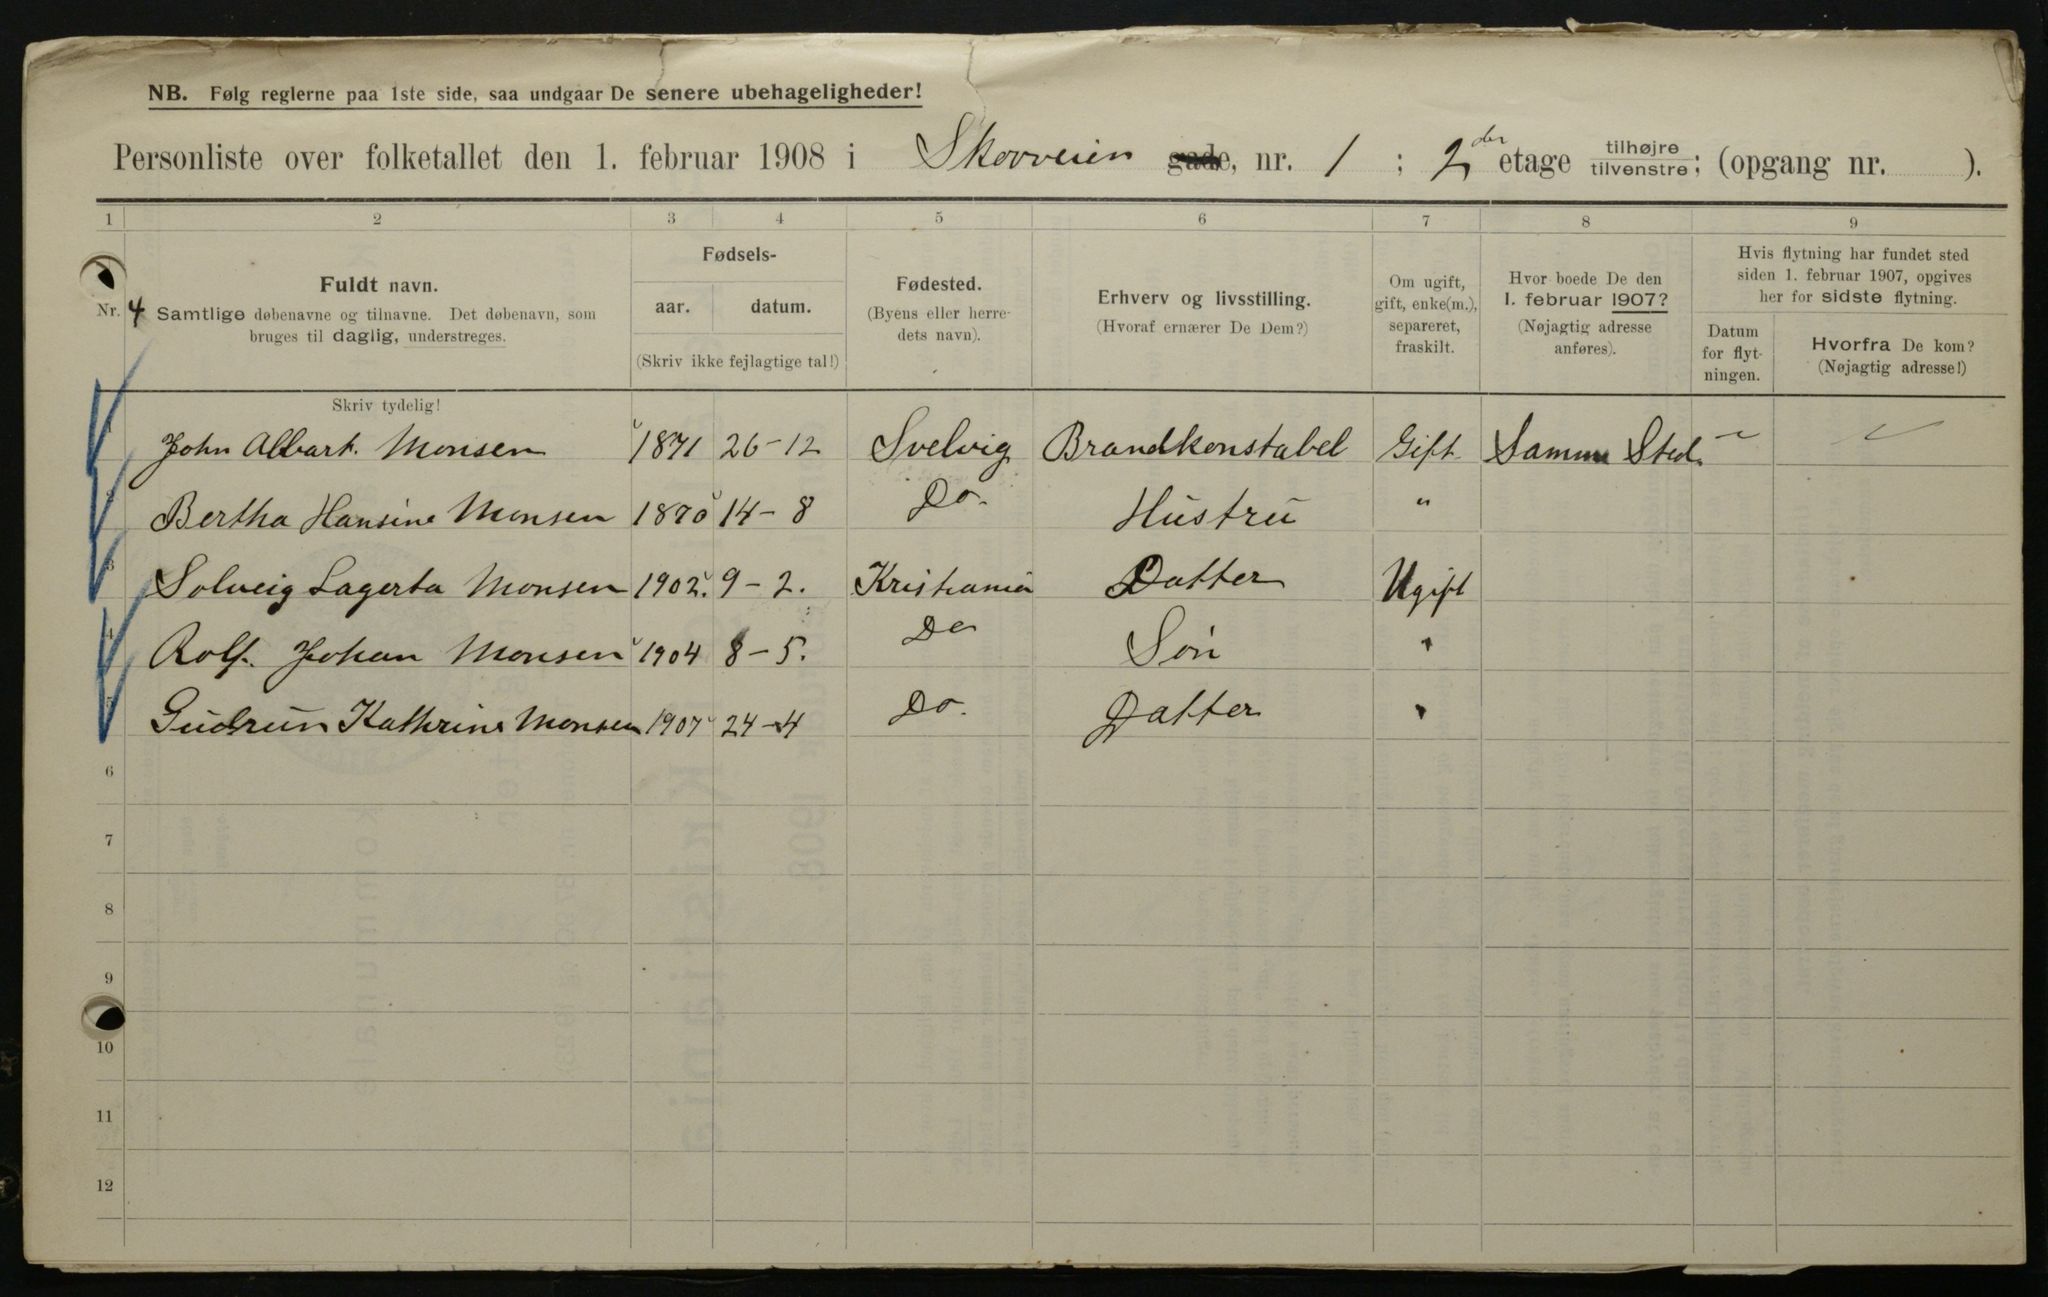 NB. Følg reglerne paa 1ste side, saa undgaar De senere ubehageligheder!
Personliste over folketallet den 1. februar 1908 i Skovveien gade, nr. 1 ; 2den etage tilhøjre tilvenstre; (opgang nr. ).
1 2 3 4 5 6 7 8 9
Nr. 4
Fuldt navn.
Samtlige døbenavne og tilnavne. Det døbenavn, som
bruges til daglig, understreges.
Fødsels-
aar. datum.
(Skriv ikke fejlagtige tal!)
Fødested.
(Byens eller herre-
dets navn).
Erhverv og livsstilling.
(Hvoraf ernærer De Dem?)
Om ugift,
gift, enke(m.),
separeret,
fraskilt.
Hvor boede De den
1. februar 1907?
(Nøjagtig adresse
anføres).
Hvis flytning har fundet sted
siden 1. februar 1907, opgives
her for sidste flytning.
Datum
for flyt-
ningen.
Hvorfra De kom?
(Nøjagtig adresse!)
Skriv tydelig!
1 John Albart. Monsen 1871 26-12 Svelvig Brandkonstabel Gift Samme Sted.
2 Bertha Hansine Monsen 1870 14-8 Do. Hustru "
3 Solveig Lagerta Monsen 1902. 9-2. Kristiania Datter Ugift
4 Rolf. Johan Monsen 1904 8-5. Do Søn "
5 Gudrun Kathrine Monsen 1907 24-4 Do. Datter "
6
7
8
9
10
11
12